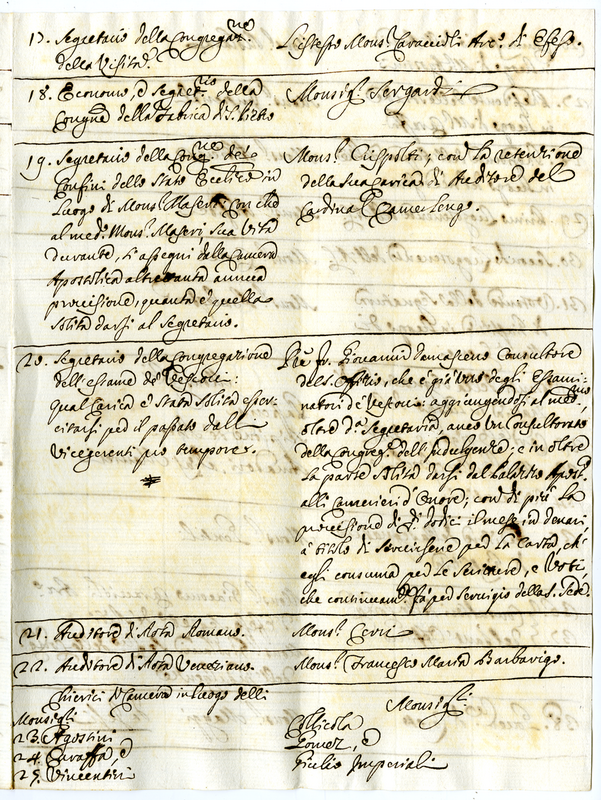 17. Segretario della Congregaz.ne
della Visita.
L'istesso Mons.r Caraccioli Arc.o di Efeso.
18. Economo, e Segret.rio della
Congne della Fabrica di S. Pietro
Monsig.r Sergardi
19. Segretario della Cong.ne dei
Confini dello Stato Eccl.ico in
luogo di Mons.r Maseri con che
al med.o Mons.r Maseri sua vita
durante, si assegni dalla Camera
Apostolica altretanta annua
provisione, quanta è quella
solita darsi al Segretario.
Mons.r Crispolti; con la retenzione
della sua carica di Auditore del
Cardinal Camerlengo.
20. Segretario della Congregazione
dell'essame de Vescovi:
qual carica è stata solita eser-
citarsi per il passato dalli
Vicegerenti pro tempore.
Pre fr. Giovanni Damasceno Consultore
del S. Offitio, che è già uno degli Essami-
natori de Vescovi: aggiungendosi al med.mo,
oltre d.a Segretaria, anco un Consultorato
della Congreg.e dell'Indulgenze; e in oltre
la parte solita darsi dal Palazzo Apost.
alli Camerieri d'Onore; con di più la
provisione di dodici il mese in denari,
a titolo di servirsene per la Carta, che
egli consuma per le scritture, e Voti
che continuam.te fa per servigio della S. Sede.
21. Auditore di Rota Romano.
Mons.r Cerri
22. Auditore di Rota Veneziano.
Mons.r Francesco Maria Barbarigo.
Chierici di Camera in luogo delli
Monsig.li
23. Agostini
24. Caraffa, e
25. Vincentini
Monsig.li
Collicola
Gomez, e
Giulio Imperiali